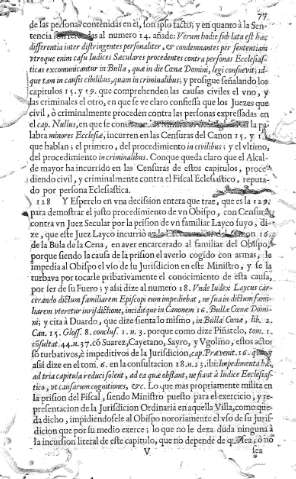 77
de las personas contenidas en el, son ipso facto; y en quanto à la Sen-
tencia al numero 14. añade: Verum hodie sublata est hæc
differentia inter distringentes personaliter, & condemnantes per sententiam
utroque enim casu Iudices Sæculares procedentes contra personas Ecclesias-
ticas excommunicantur in Bulla, quæ in die Cenæ Domini, legi consuevit; id-
que tam in causis cibilibus, quam in criminalibus; y prosigue señalando los
capitulos 15. y 19. que comprehenden las causas civiles el vno, y
las criminales el otro, en que se ve claro confiessa que los Juezes que
civil, ò criminalmente proceden contra las personas expressadas en
el cap. Nullus, en que se la pa-
labra minores Ecclesiæ, incurren en las Censuras del Canon 15. y 1
que hablan; el primero, del procedimiento in civilibus; y el vltimo,
del procedimiento in criminalibus. Conque queda claro que el Alcal-
de mayor ha incurrido en las Censuras de estos capitulos, proce-
diendo civil, y criminalmente contra el Fiscal Eclesiastico, reputa-
do por persona Eclesiastica.
128 Y Esperelo en vna decission entera que trae, que es la 129.
para demostrar el justo procedimiento de vn Obispo, con Censuras
contra vn Juez Secular por la prision de vn familiar Layco suyo, di-
ze, que este Juez Layco incurriò 16.
de la Bula de la Cena, en aver encarcerado al familiar del Obispo,
porque siendo la causa de la prision el averlo cogido con armas, le
impedia al Obispo el vso de su Jurisdicion en este Ministro, y se la
turbava por tocarle pribativamente el conocimiento de esta causa,
por ser de su Fuero; y assi dize al numero 18. Vnde Iudex Laycus car-
cerando dictum familiarem Episcopum impediebat, ne sua in dictum fami-
liarem vteretur jurisdictione, inciditque in Canonem 16. Bullæ Cenæ Domi-
ni; y cita à Duardo, que dize sienta lo mismo, in Bulla Cenæ, lib. 2.
Can. 15. Glos. 8. conclus. 1. n. 3. porque como dize Piñatelo, tom. 1.
consultat. 44. n. 37. cō Suarez, Cayetano, Sayro, y Vgolino, estos actos
sō turbativos, è impeditivos de la Jurisdicion, cap. 16.
assi dize en el tom. 6. en la consultacion 18. n. 23. ibi: Impedimenta hæc,
ad tria capitula reduci solent, ad ea quæ obstant, ne fiant à Iudice Ecclesias-
tico, vt causarum cognitiones, &c. Lo que mas propriamente milita en
la prision del Fiscal, siendo Ministro puesto para el exercicio, y re-
presentacion de la Jurisdicion Ordinaria en aquella Villa, como que-
da dicho, impidiendosele al Obispo notoriamente el vso de su Juris-
dicion que por su medio exerce; lo que no le dexa duda ninguna à
la incursion literal de este capitulo, que no depende de q̄ sea, ò no
V
sea